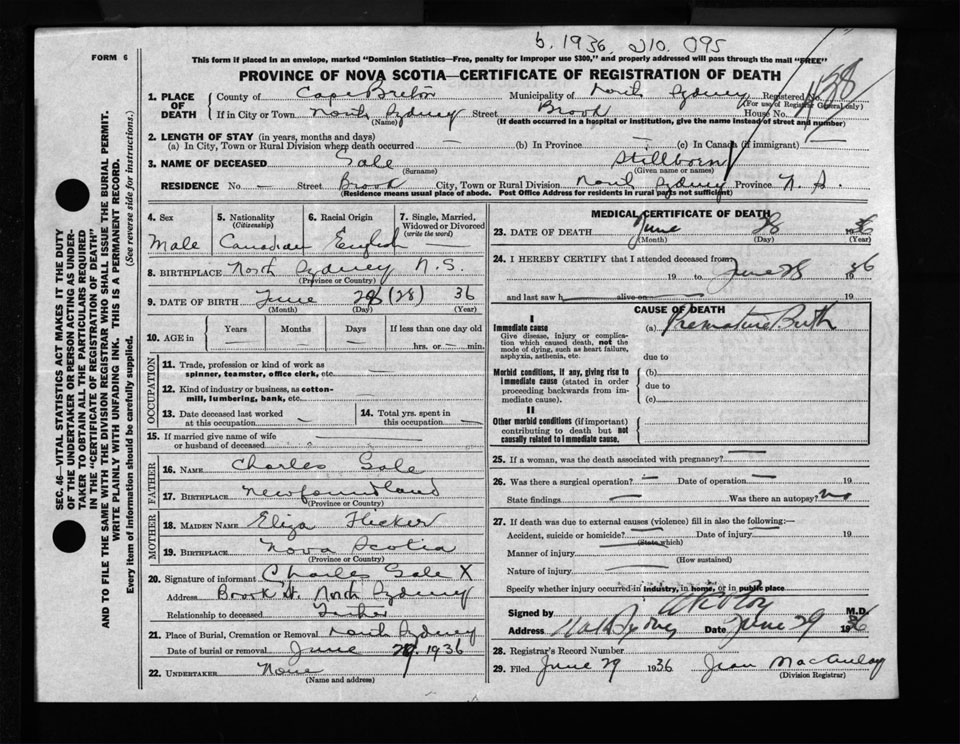 b. 1936. 210. 095
FORM 6
This form if placed in an envelope, marked "Dominion Statistics—Free, penalty for improper use $300," and properly addressed will pass through the mail "FREE"
PROVINCE OF NOVA SCOTIA—CERTIFICATE OF REGISTRATION OF DEATH
1. PLACE OF DEATH
County of Cape Breton Municipality of North Sydney Registered No. 138
(For use of Registrar General only)
If in City or Town North Sydney Street Brook House No.
(Name) (If death occurred in a hospital or institution, give the name instead of street and number)
2. LENGTH OF STAY (in years, months and days)
(a) In City, Town or Rural Division where death occurred — (b) In Province — (c) In Canada (if immigrant) —
3. NAME OF DECEASED Gale Stillborn
(Surname) (Given name or names)
RESIDENCE No. — Street Brook City, Town or Rural Division North Sydney Province N. S.
(Residence means usual place of abode. Post Office Address for residents in rural parts not sufficient)
4. Sex
Male
5. Nationality
(Citizenship)
Canadian
6. Racial Origin
English
7. Single, Married, Widowed or Divorced
(write the word)
—
8. BIRTHPLACE North Sydney N.S.
(Province or Country)
9. DATE OF BIRTH June 28 (28) 36
(Month) (Day) (Year)
10. AGE in
Years Months Days If less than one day old
— — — hrs. or — min.
OCCUPATION
11. Trade, profession or kind of work as
spinner, teamster, office clerk, etc. —
12. Kind of industry or business, as cotton-
mill, lumbering, bank, etc. —
13. Date deceased last worked
at this occupation —
14. Total yrs. spent in
this occupation —
15. If married give name of wife
or husband of deceased —
FATHER
16. NAME Charles Gale
17. BIRTHPLACE Newfoundland
(Province or Country)
MOTHER
18. MAIDEN NAME Eliza Flecker
19. BIRTHPLACE Nova Scotia
(Province or Country)
20. Signature of informant Charles Gale X
Address Brook St. North Sydney
Relationship to deceased Father
21. Place of Burial, Cremation or Removal North Sydney
Date of burial or removal June 29. 1936
22. UNDERTAKER None
(Name and address)
MEDICAL CERTIFICATE OF DEATH
23. DATE OF DEATH June 28 1936
(Month) (Day) (Year)
24. I HEREBY CERTIFY that I attended deceased from
19 to June 28 1936
and last saw h alive on 19
CAUSE OF DEATH
I
Immediate cause (a) Premature Birth
Give disease, injury or complication which caused death, not the mode of dying, such as heart failure, asphyxia, asthenia, etc.
due to
Morbid conditions, if any, giving rise to immediate cause (stated in order proceeding backwards from immediate cause).
(b)
due to
(c)
II
Other morbid conditions (if important) contributing to death but not causally related to immediate cause.
25. If a woman, was the death associated with pregnancy? —
26. Was there a surgical operation? — Date of operation —
State findings — Was there an autopsy? no
27. If death was due to external causes (violence) fill in also the following:—
Accident, suicide or homicide? — Date of injury 19
(State which)
Manner of injury
(How sustained)
Nature of injury
Specify whether injury occurred in industry, in home, or in public place
Signed by M.D.
Address North Sydney Date June 29 1936
28. Registrar's Record Number
29. Filed June 29 1936 Jean MacAulay
(Division Registrar)
SEC. 46—VITAL STATISTICS ACT MAKES IT THE DUTY
OF THE UNDERTAKER OR PERSON ACTING AS UNDER-
TAKER TO OBTAIN ALL THE PARTICULARS REQUIRED
IN THE "CERTIFICATE OF REGISTRATION OF DEATH"
AND TO FILE THE SAME WITH THE DIVISION REGISTRAR WHO SHALL ISSUE THE BURIAL PERMIT.
WRITE PLAINLY WITH UNFADING INK. THIS IS A PERMANENT RECORD.
Every item of information should be carefully supplied. (See reverse side for instructions.)